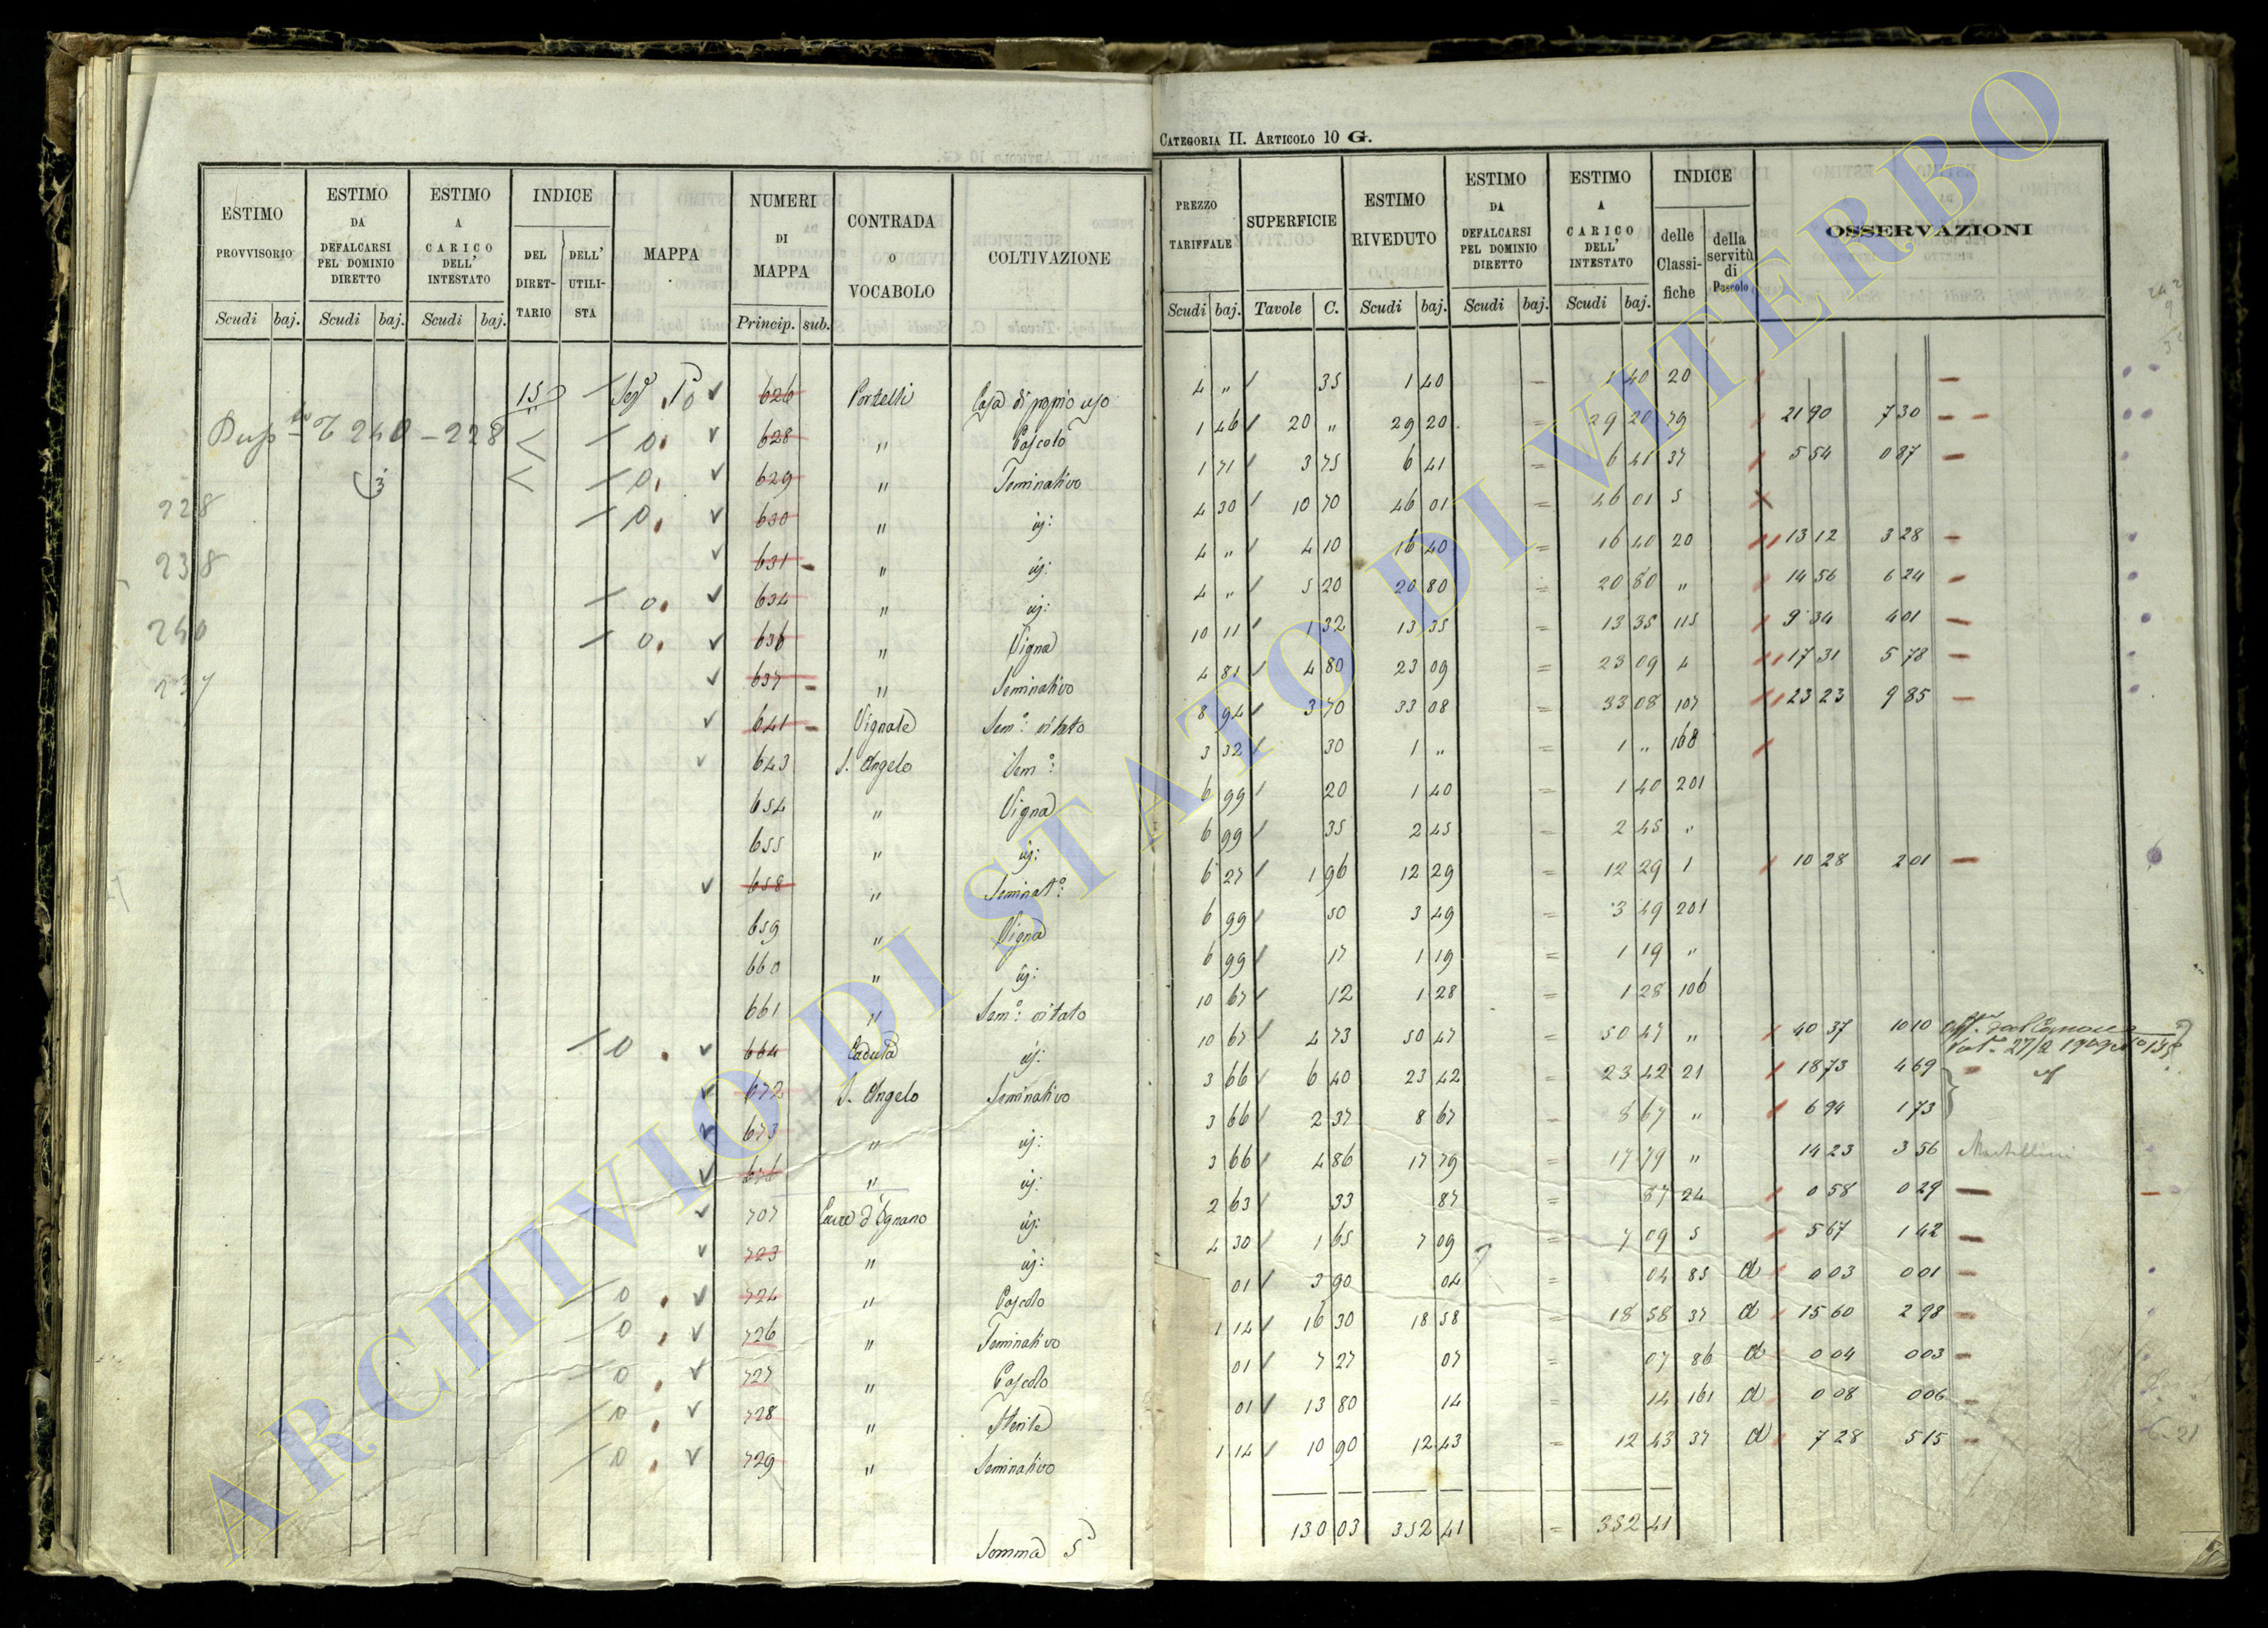 CATEGORIA II. ARTICOLO 10 G.
ESTIMO PROVVISORIO | ESTIMO DA DEFALCARSI PEL DOMINIO DIRETTO | ESTIMO A CARICO DELL' INTESTATO | INDICE DEL DIRETTARIO | DELL' UTILISTA | MAPPA | NUMERI DI MAPPA | CONTRADA O VOCABOLO | COLTIVAZIONE | PREZZO TARIFFALE | SUPERFICIE | ESTIMO RIVEDUTO | ESTIMO DA DEFALCARSI PEL DOMINIO DIRETTO | ESTIMO A CARICO DELL' INTESTATO | INDICE delle Classifiche | della servitù di Pascolo | OSSERVAZIONI
Scudi baj. | Scudi baj. | Scudi baj. | Princip. sub. | Scudi baj. | Tavole C. | Scudi baj. | Scudi baj. | Scudi baj.
15 626 Portelli Casa di propio uso 4 " 35 1 40 = 1 40 20
240 - 228 628 " Pascolo 1 46 20 " 29 20 = 29 20 79 21 90 7 30
629 " Seminativo 1 71 3 75 6 41 = 6 41 37 5 54 0 87
228 630 " id: 4 30 10 70 46 01 = 46 01 5
238 631 " id: 4 " 4 10 16 40 = 16 40 20 13 12 3 28
634 " id: 4 " 5 20 20 80 = 20 80 " 14 56 6 24
240 636 " Vigna 10 11 1 32 13 35 = 13 35 115 9 34 4 01
237 637 " Seminativo 4 81 4 80 23 09 = 23 09 4 17 31 5 78
641 Vignale Sem:o vitato 8 94 3 70 33 08 = 33 08 107 23 23 9 85
643 S. Angelo Sem:o 3 32 30 1 " = 1 " 168
654 " Vigna 6 99 20 1 40 = 1 40 201
655 " id: 6 99 35 2 45 = 2 45 "
658 " Seminat:o 6 27 1 96 12 29 = 12 29 1 10 28 2 01
659 " Vigna 6 99 50 3 49 = 3 49 201
660 " id: 6 99 17 1 19 = 1 19 "
661 " Sem:o vitato 10 67 12 1 28 = 1 28 106
664 Caduta id: 10 67 4 73 50 47 = 50 47 " 40 37 10 10
672 S. Angelo Seminativo 3 66 6 40 23 42 = 23 42 21 18 73 4 69
673 " id: 3 66 2 37 8 67 = 8 67 " 6 94 1 73
676 " id: 3 66 4 86 17 79 = 17 79 " 14 23 3 56
707 id: 2 63 33 87 = 87 24 0 58 0 29
723 " id: 4 30 1 65 7 09 = 7 09 5 5 67 1 42
724 " Pascolo 01 3 90 04 = 04 85 a 0 03 0 01
726 " Seminativo 1 14 16 30 18 58 = 18 58 37 a 15 60 2 98
727 " Pascolo 01 7 27 07 = 07 86 a 0 04 0 03
728 " Sterile 01 13 80 14 = 14 161 a 0 08 0 06
729 " Seminativo 1 14 10 90 12 43 = 12 43 37 a 7 28 5 15
Somma 130 03 352 41 = 352 41
ARCHIVIO DI STATO DI VITERBO